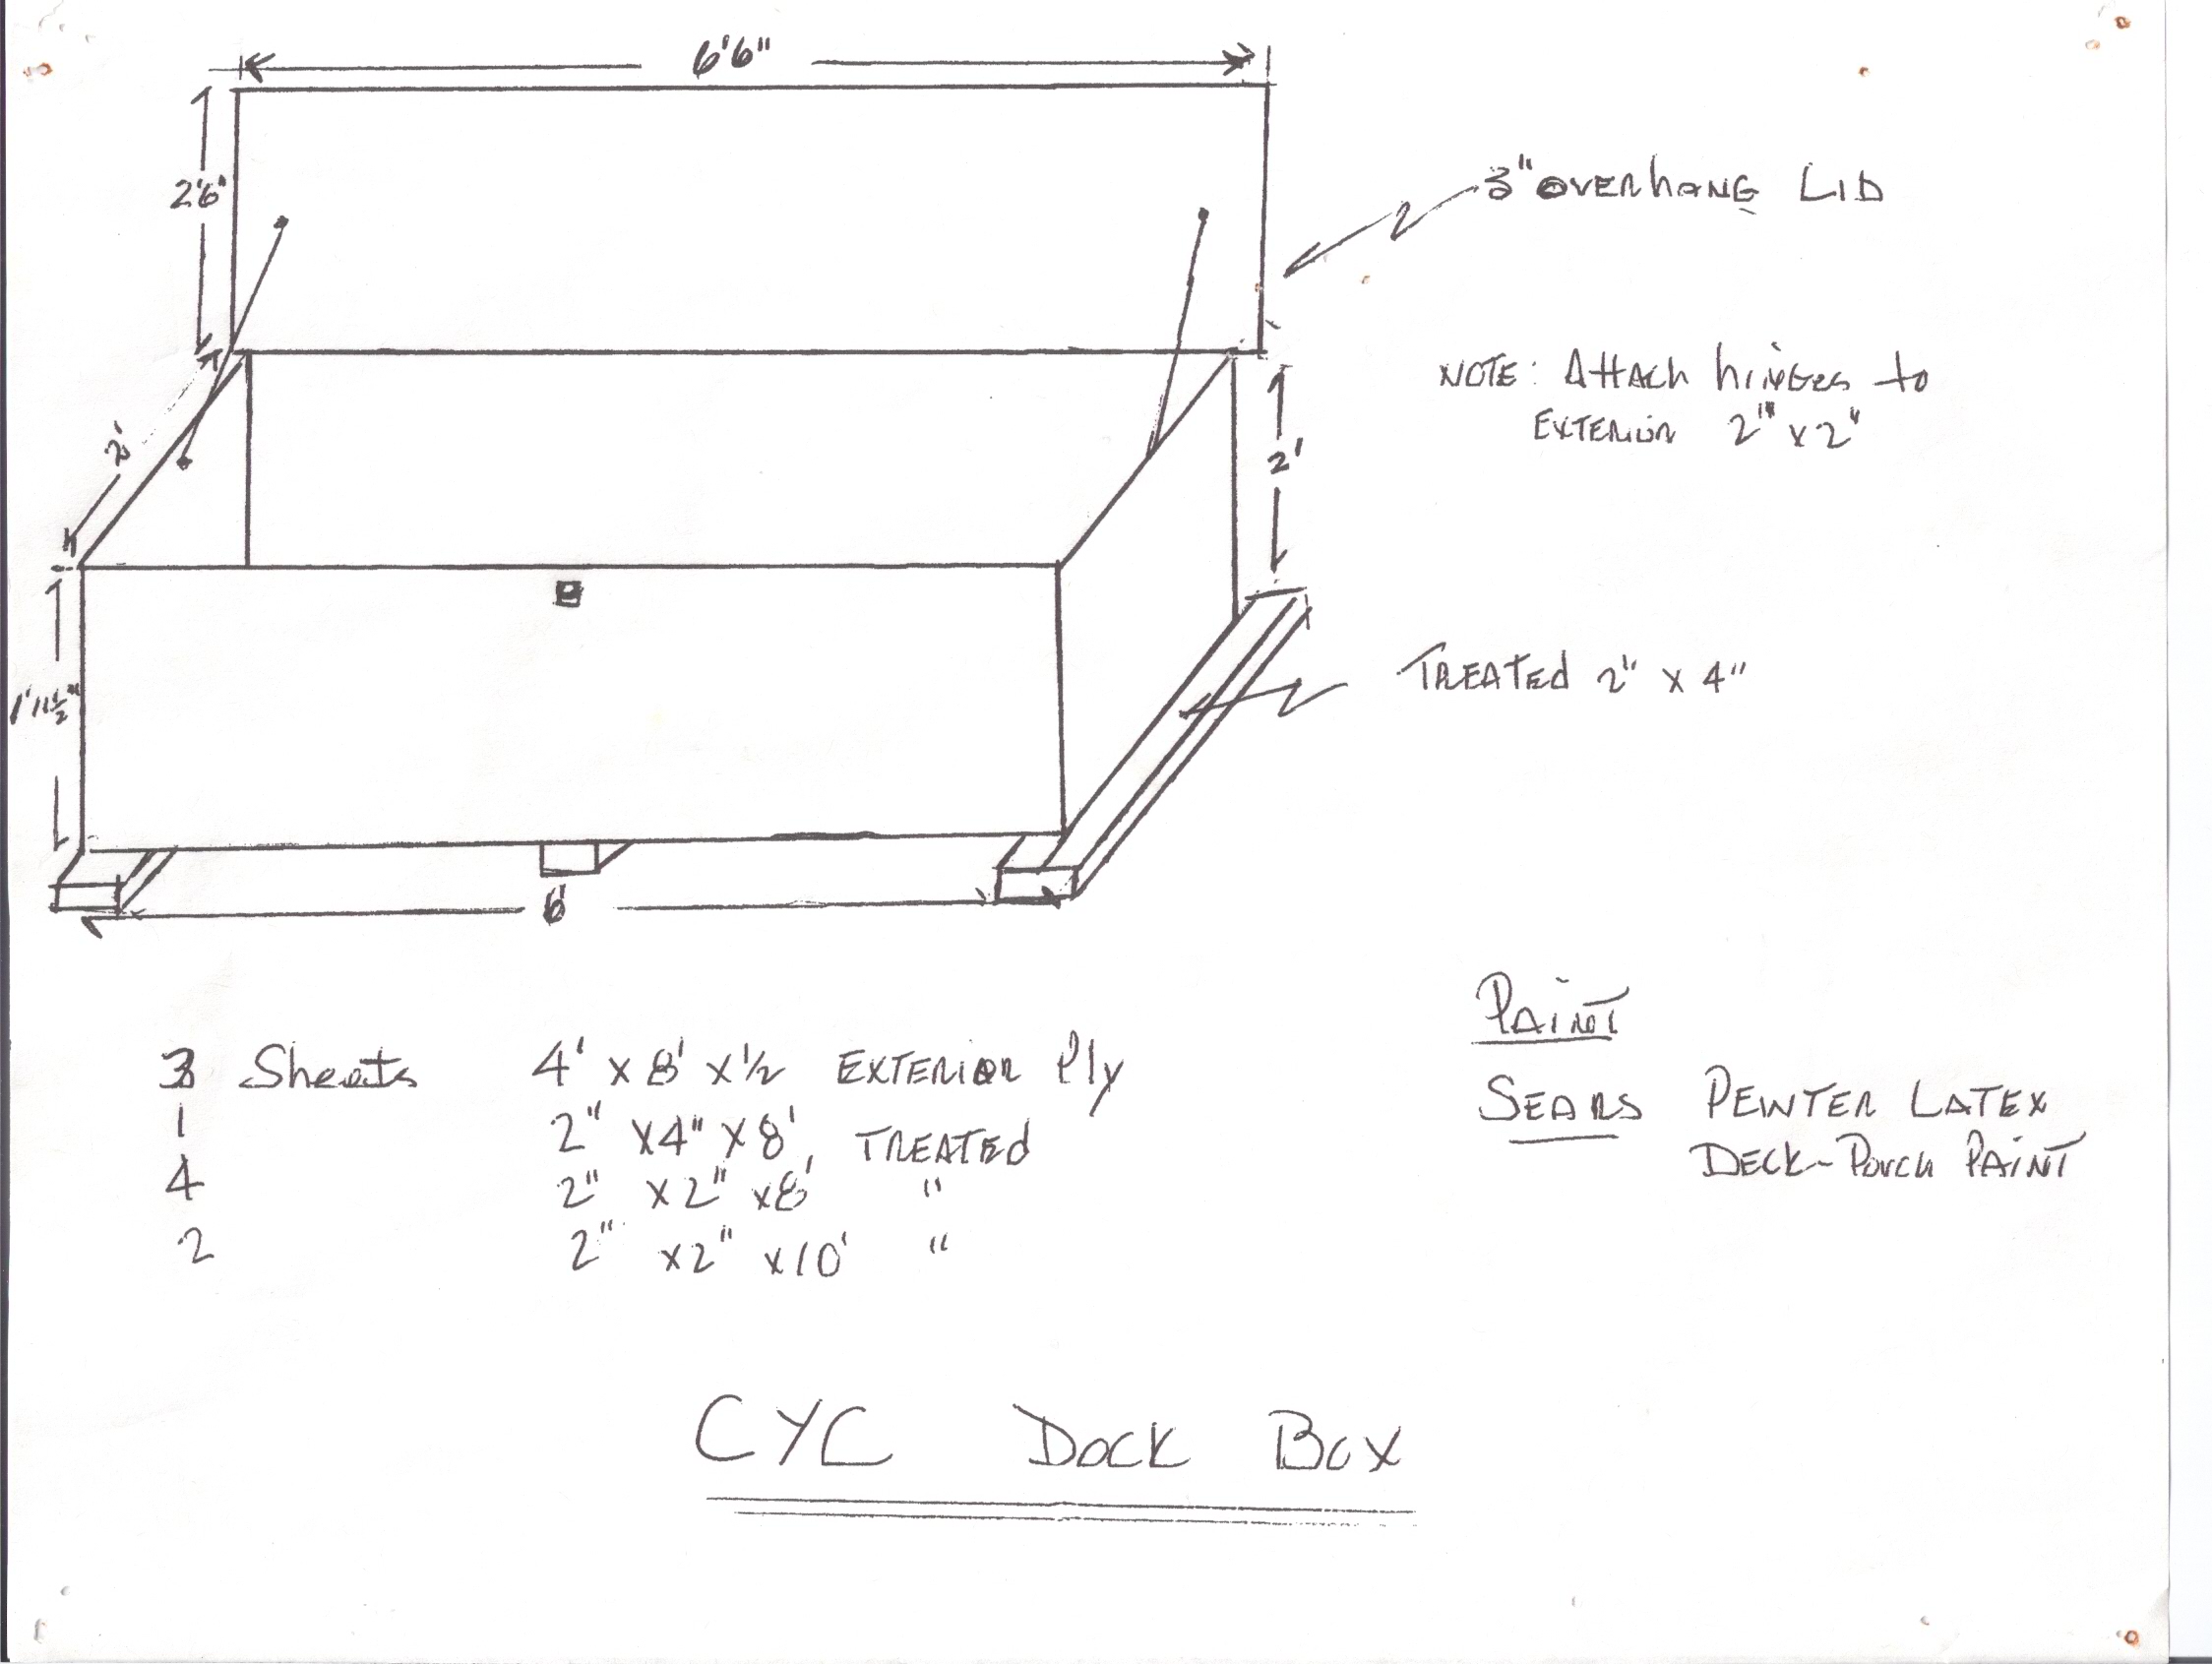 6'6"
2'6"
3" OVERhANG LID
NOTE: Attach hinges to
EXTERIOR 2" x 2"
2'
2'
1'11½"
TREATED 2" x 4"
6'
3 Sheets 4' x 8' x ½ EXTERIOR Ply
1 2" x 4" x 8' TREATED
4 2" x 2" x 8' "
2 2" x 2" x 10' "
PAINT
SEARS PEWTER LATEX
DECK-Porch PAINT
CYC Dock Box